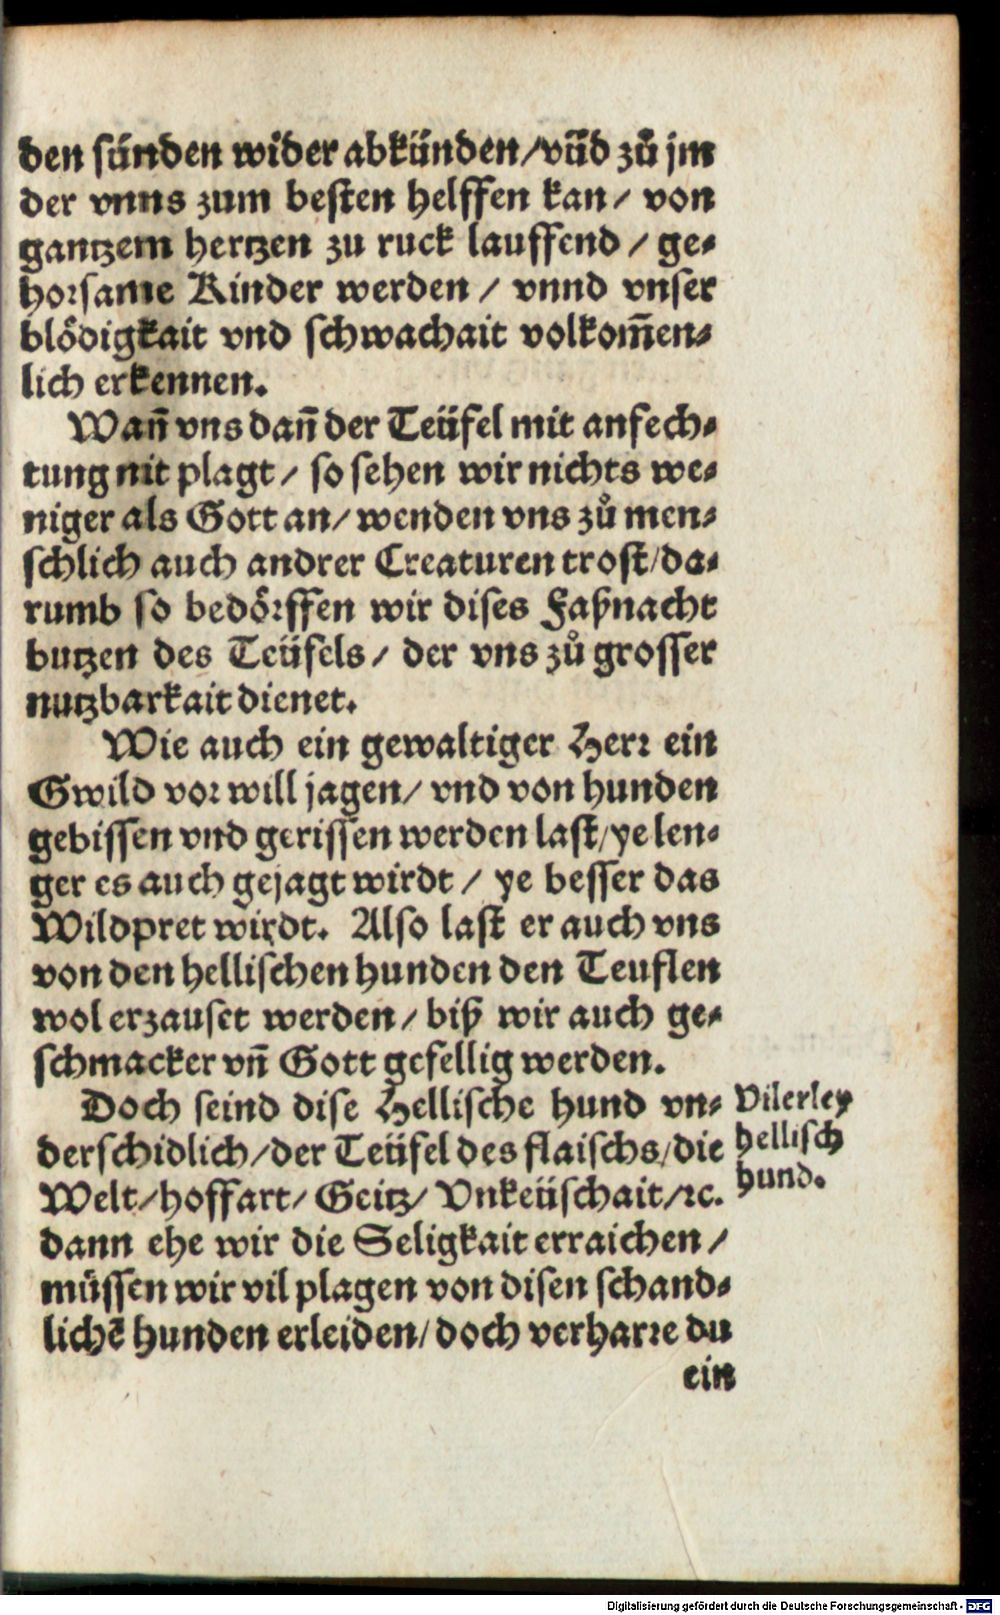 den sünden wider abkünden/vñd zů jm
der vnns zum besten helffen kan/ von
gantzem hertzen zu ruck lauffend / ge-
horsame Kinder werden / vnnd vnser
blödigkait vnd schwachait volkom̃en-
lich erkennen.
Wañ vns dañ der Teüfel mit anfech-
tung nit plagt/ so sehen wir nichts we-
niger als Gott an/ wenden vns zů men-
schlich auch andrer Creaturen trost/da-
rumb so bedörffen wir dises Faßnacht
butzen des Teüfels/ der vns zů grosser
nutzbarkait dienet.
Wie auch ein gewaltiger Herr ein
Gwild vor will jagen/ vnd von hunden
gebissen vnd gerissen werden last/ye len-
ger es auch gejagt wirdt / ye besser das
Wildpret wirdt. Also last er auch vns
von den hellischen hunden den Teuflen
wol erzauset werden/ biß wir auch ge-
schmacker vñ Gott gefellig werden.
Doch seind dise Hellische hund vn-
derschidlich/der Teüfel des flaischs/die
Welt/hoffart/ Geitz/ Vnkeüschait/ꝛc.
dann ehe wir die Seligkait erraichen/
müssen wir vil plagen von disen schand-
lichē hunden erleiden/doch verharre du
ein
Vilerley
hellisch
hund.
Digitalisierung gefördert durch die Deutsche Forschungsgemeinschaft - DFG